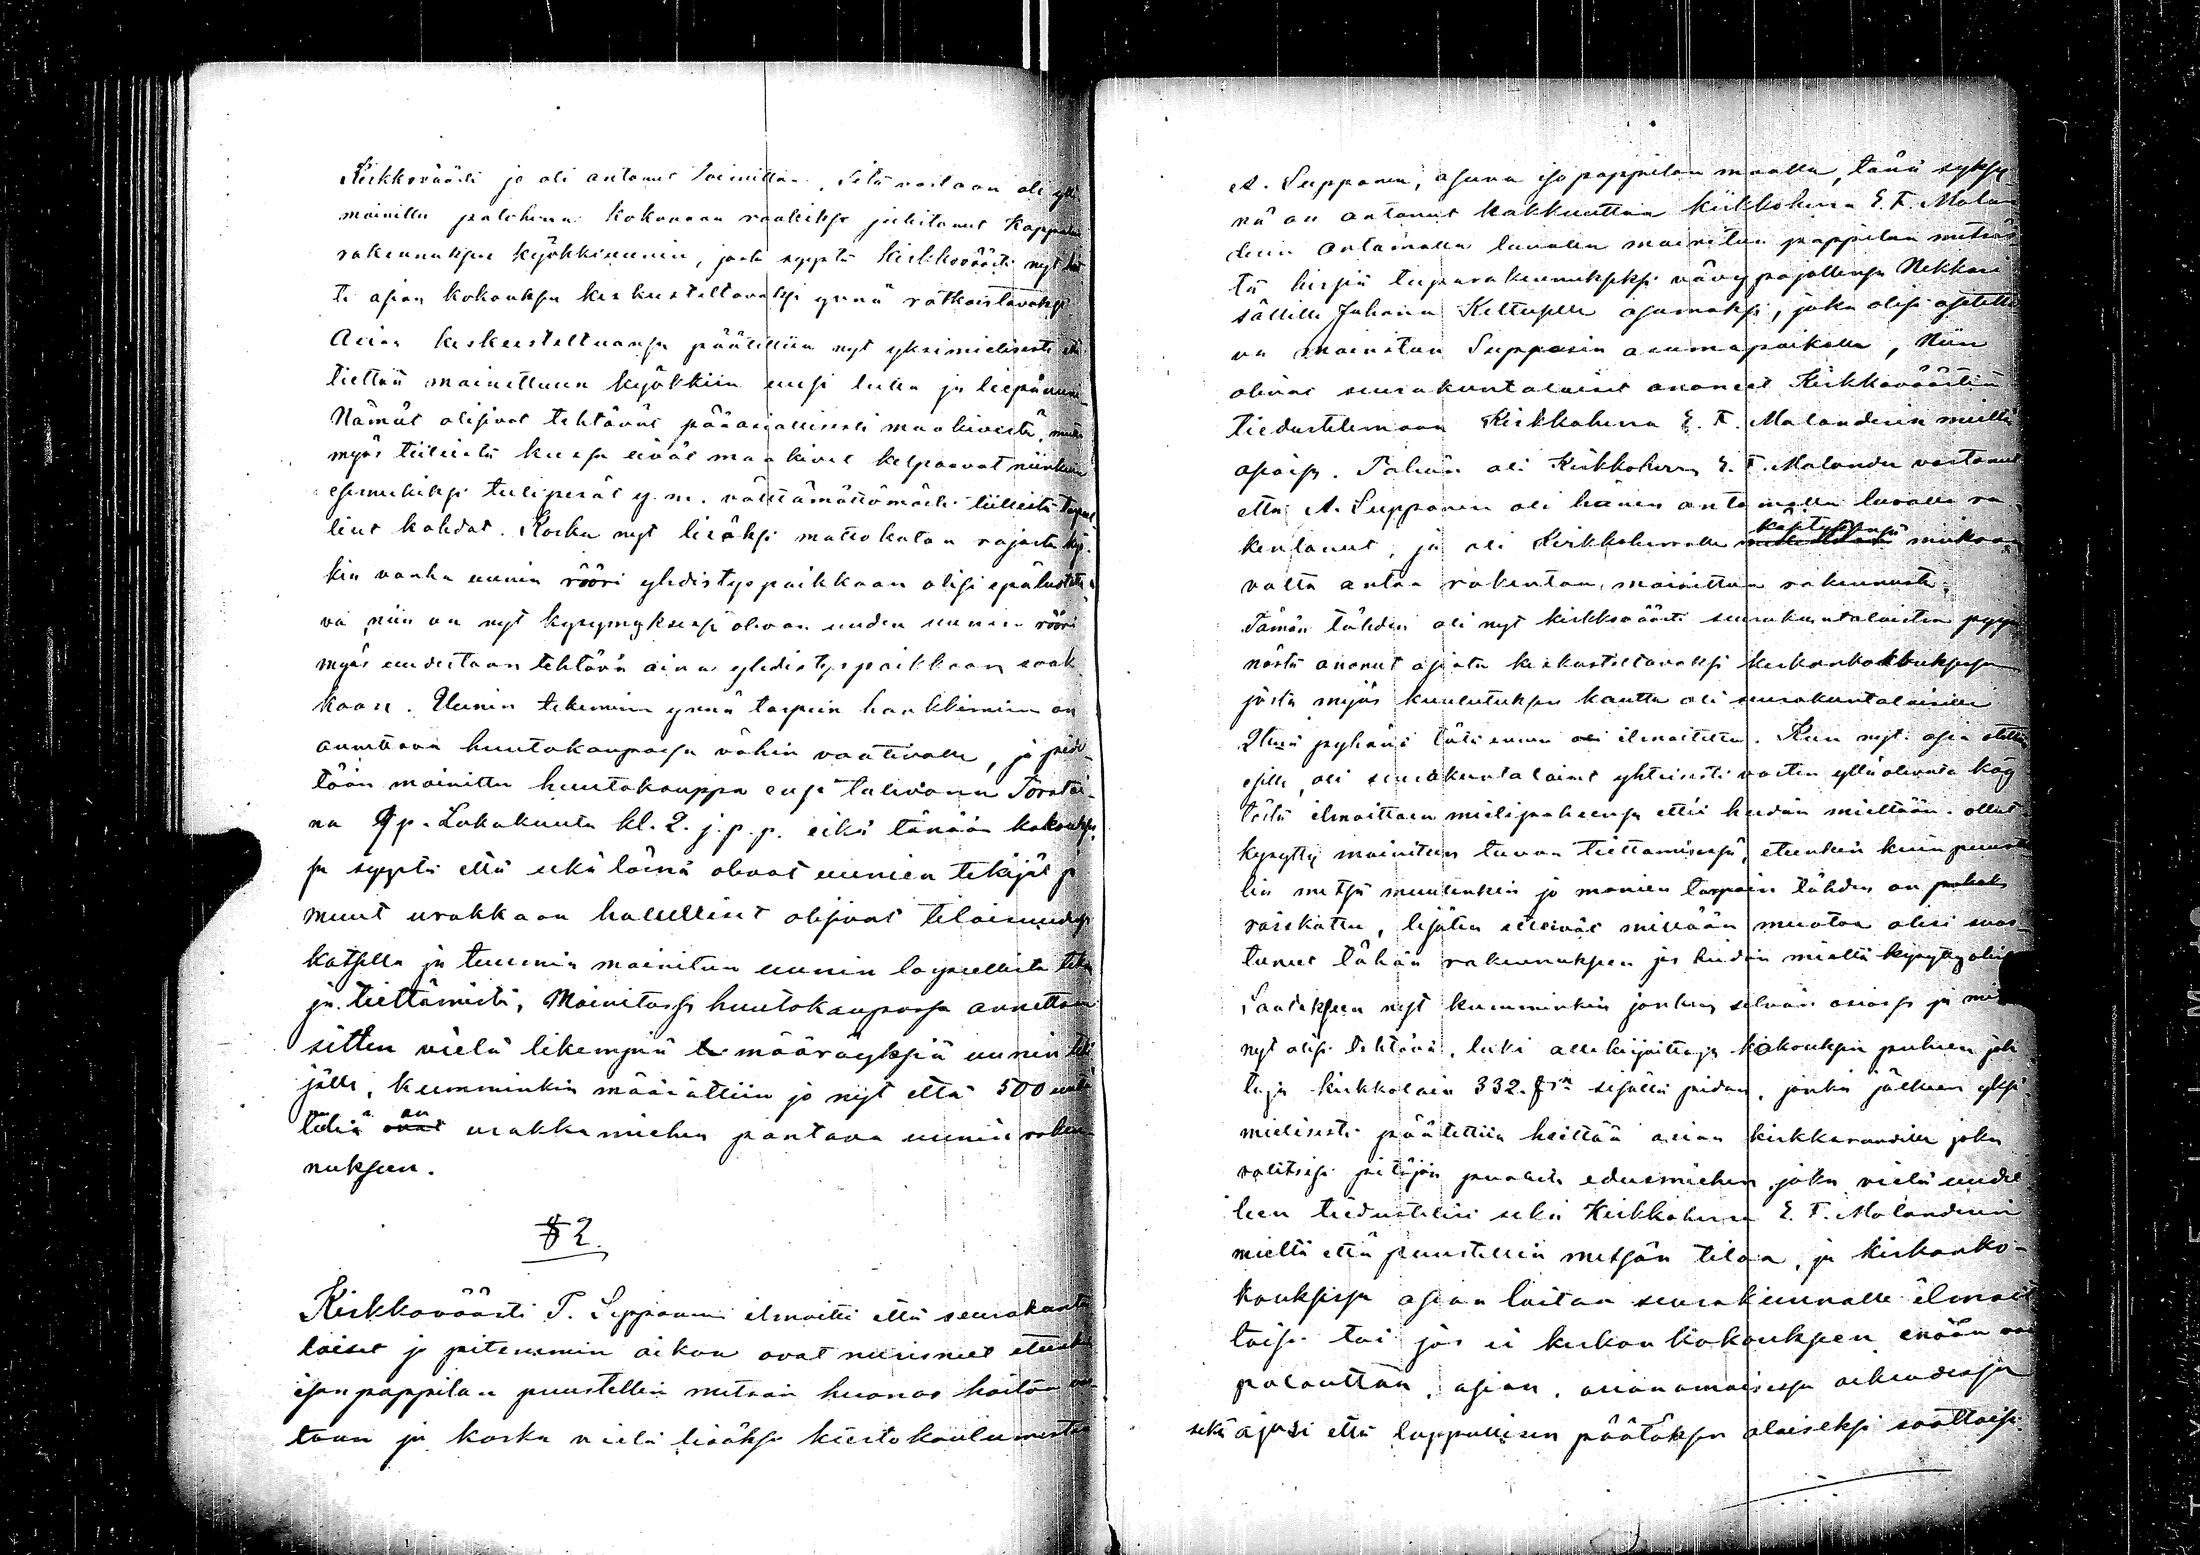 Kirkkoväärti jo oli antanut toimittaa. Sitä vastaan oli yllä
mainittu palohuus kokonaan raakiksi jättänyt Kappalai
rakennuksen kyökkiuunin, josta syystä Kirkkoväärti nyt
ti asian kokouksen keskusteltavaksi ynnä ratkaistavaksi.
Asian keskusteltuansa päätettiin nyt yksimielisesti
tiettää mainittuun kyökkiin uusi hella ja leipäuuni
Nämät olisivat tehtävät pääasiallisesti maakivestä, mutta
myös tiilistä kussa eivät maakivet kelpaavat niinkuin
esimerkiksi tulipesät y. m. välttämättömästi tiilistä
liset kohdat. Koska nyt lisäksi matto katon rajasta
kin vanha uunin rööri yhdistyspaikkaan olisi epäluotetta
va, niin on nyt kysymyksessä olevan uuden uunin rööri
myös uudestaan tehtävä aina yhdistyspaikkaan saak
kaan. Uunin tekeminen ynnä tarpein hankkiminen on
annettava huutokaupassa vähin vaativalle, ja pide
tään mainittu huutokauppa ensi tulevana Torstai
na 9 p. Lokakuuta kl. 2. j. p. p. eikä tänään kokouksessa
sa syystä että sekä läsnä olevat uunien tekijät ja
muut urakkaan halulliset olisivat tilaisuudessa
katsella ja tuumia mainitun uunin lopullista teke
ja tiettämistä. Mainitussa huutokaupassa annettaan
sitten vielä likempiä määräyksiä uunin teki
jälle, kumminkin määrättiin jo nyt että 500 uutta
tiiliä ovat on urakkamiehen pantava uunin raken
nukseen.
§ 2.
Kirkkoväärti T. Seppänen ilmoitti että seurakunta
laiset jo pitemmin aikaa ovat nurisneet etenkin
ison pappilan puustellin metsän huonoa hoitoa vas
taan ja koska vielä lisäksi kiertokoulumestari
A. Seppänen, asuva iso pappilan maalla, tänä syksy
nä on antanut hakkuuttaa kirkkoherra E. F. Molan
derin antamalla luvalla mainitun pappilan metsäs
tä hirsiä tuparakennukseksi vävypojallensa Nekkari
sällille Juhana Kettuselle asumaksi, joka olisi asetetta
va mainitun Seppäsen asumapaikalle, Niin
olivat seurakuntalaiset anoneet Kirkkoväärtin
tiedustelemaan Kirkkoherra E. F. Molanderin mieltä
asiassa. Tähän oli Kirkkoherra E. F. Molander vastannut
että A. Seppänen oli hänen antamalla luvalla ra
kentanut, ja oli Kirkkoherralla käsityksensä mukaan
valta antaa rakentaa mainittua rakennusta.
Tämän tähden oli nyt kirkkoväärti seurakuntalaisten pyyn
nöstä anonut asiata keskusteltavaksi kirkonkokouksessa
josta myös kuulutuksen kautta oli seurakuntalaisille
2llena pyhänä tätä ennen oli ilmoitettu. Kun nyt asia otettiin
esille, oli seurakuntalaiset yhteisesti vasten yllä olevata käy
töstä ilmoittaen mielipaheensa ettei heidän mieltään ollut
kysytty mainitun tuvan tiettämisessä, etenkin kuin puustel
lin metsä muutenkin jo monien tarpein tähden on pahaksi
raiskattu, lisäten etteivät millään muotoa olisi suos
tuneet tähän rakennukseen jos heidän mieltä kysytty olisi
Saadakseen nyt kumminkin jonkun selvän asiassa ja mitä
nyt olisi tehtävä, luki allekirjoittaja kokouksen puheen joh
taja kirkkolain 332. §:n sisällä pidon, jonka jälkeen yksi
mielisesti päätettiin heittää asian kirkkoraadille joka
valitsisi pitäjän puolesta edusmiehen, joka vielä uudel
leen tiedustelisi sekä Kirkkoherra E. F. Molanderin
mieltä että puustellin metsän tilaa, ja kirkonko-
kouksessa asian laitaa seurakunnalle ilmoit
taisi tai jos ei kirkonkokouksen enään
palauttaa, asian, asianomaisessa oikeudessa
sekä ajaisi että lopullisen päätöksen alaiseksi saattaisi.